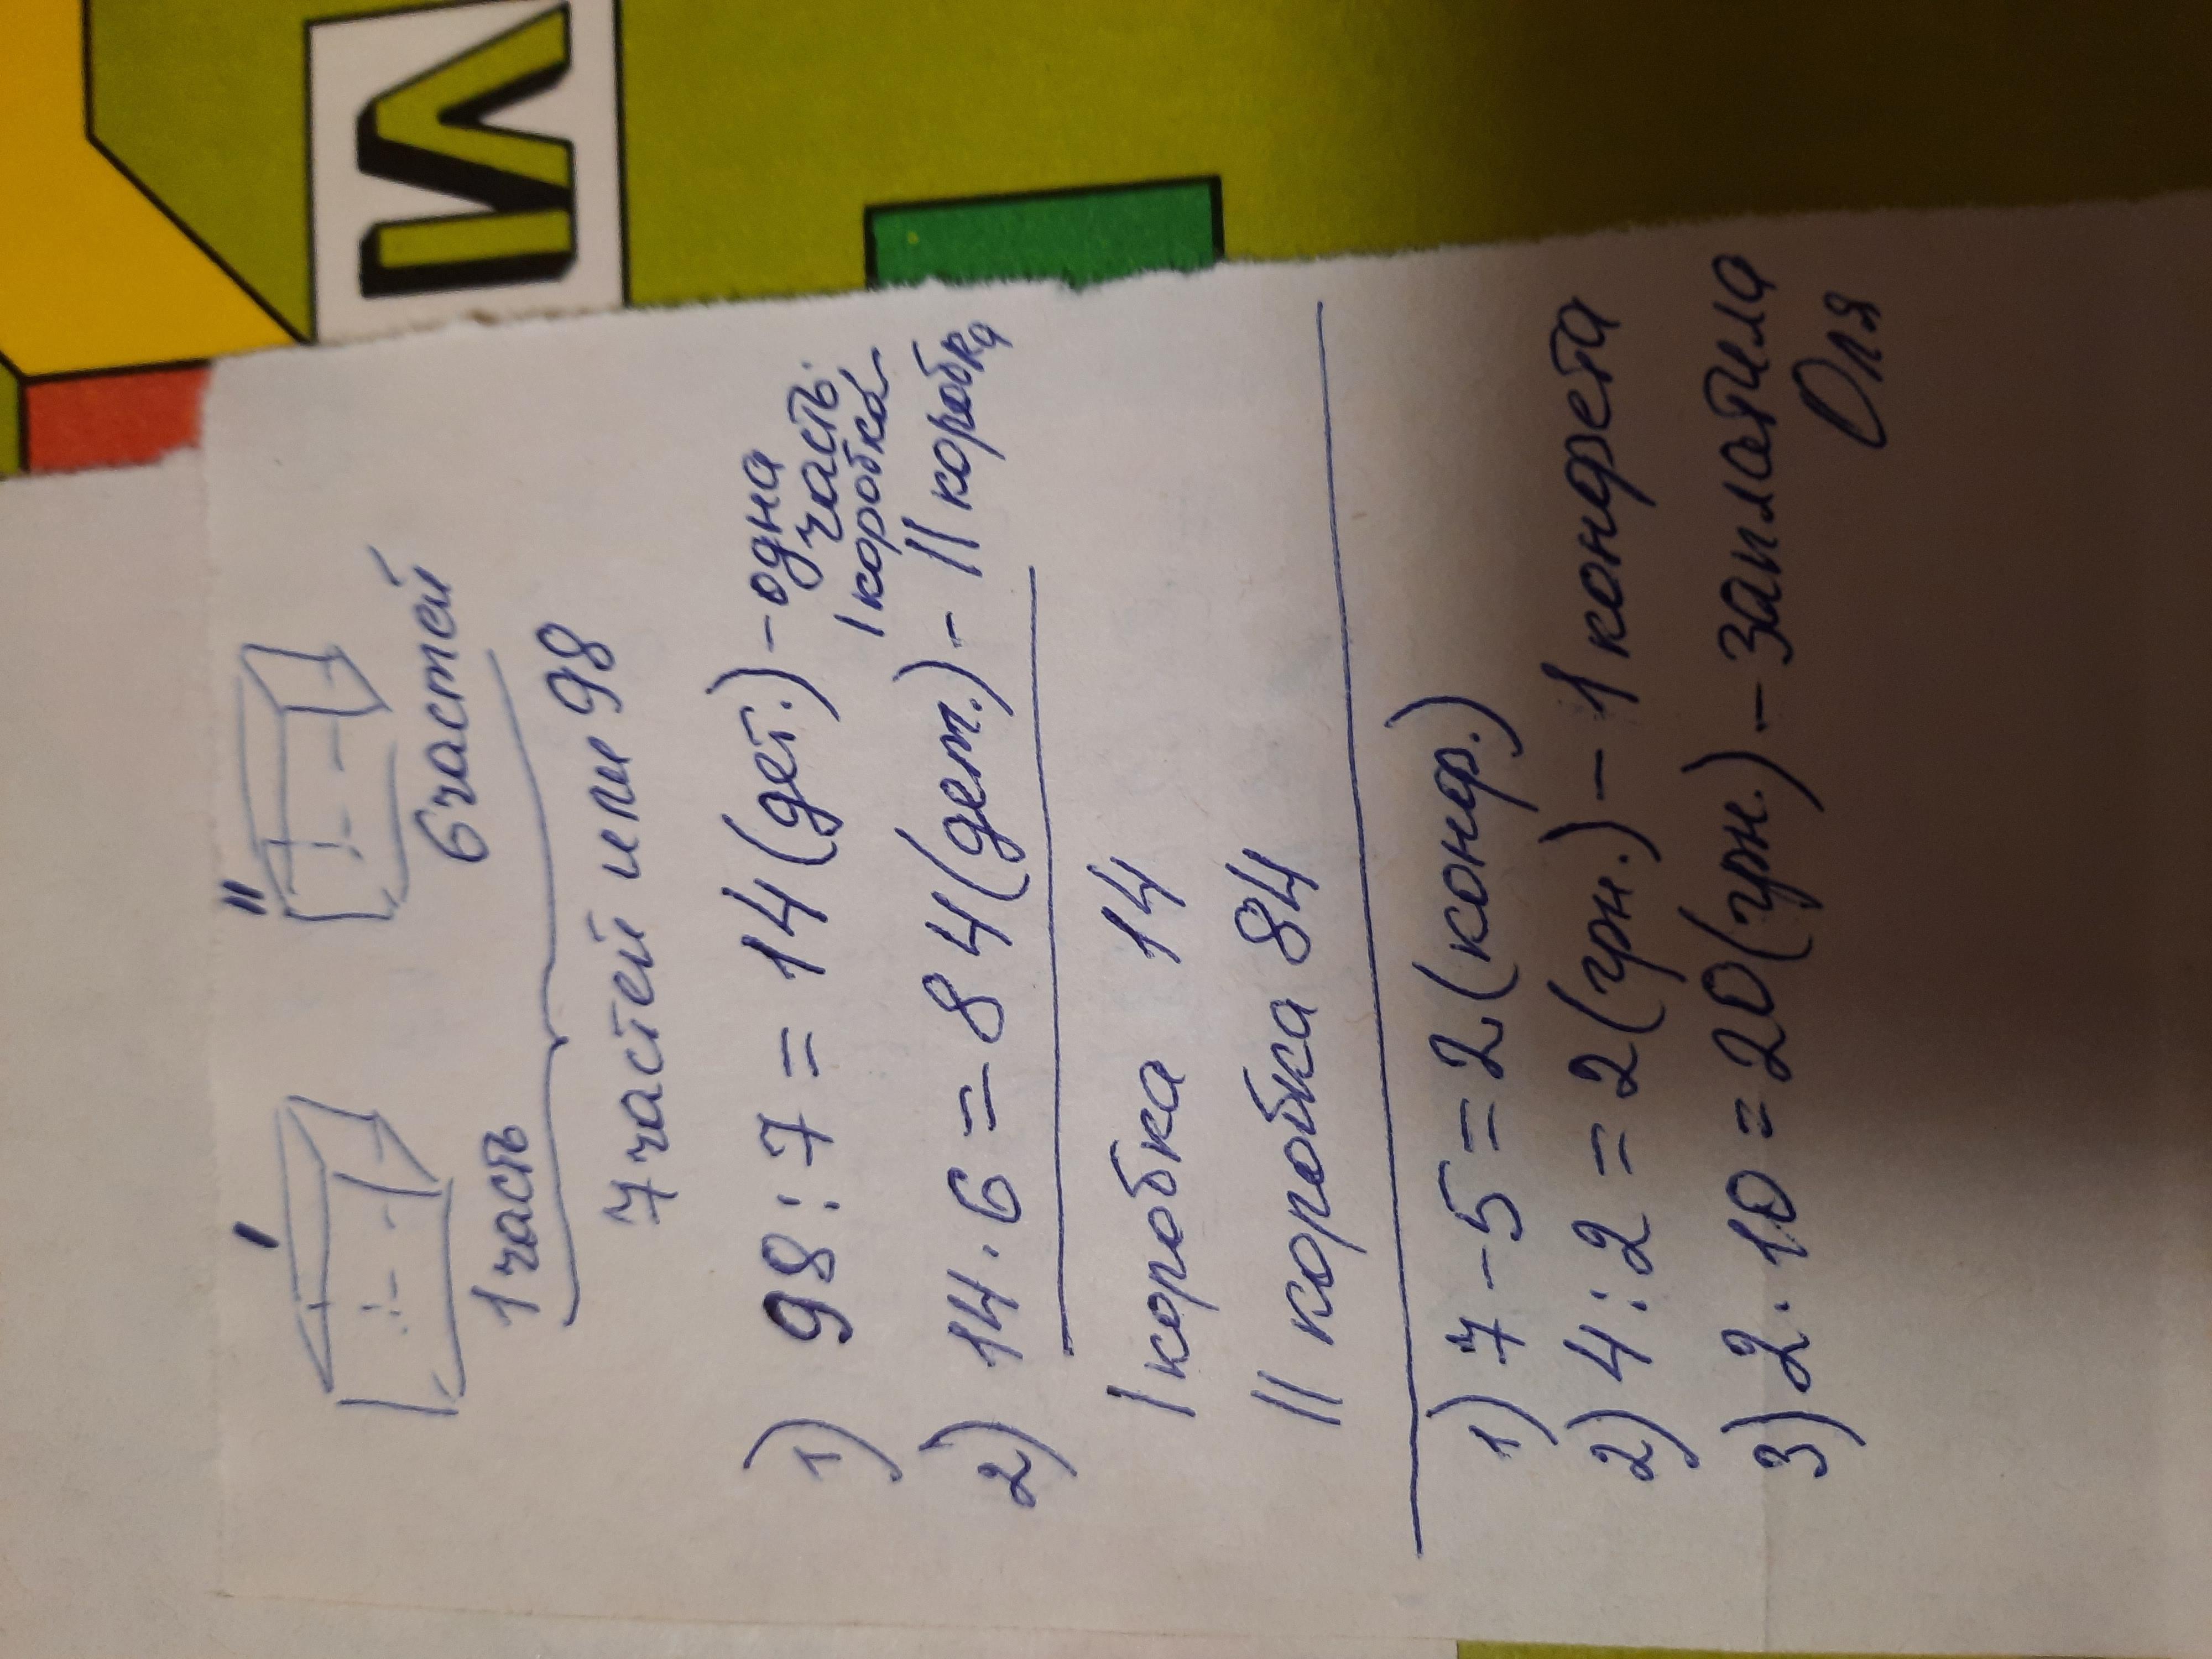 И
I II
1 часть 6 частей
7 частей или 98
1) 98 : 7 = 14 (дет.) - одна
часть.
I коробка
2) 14 · 6 = 84 (дет.) - II коробка
I коробка 14
II коробка 84
1) 7 - 5 = 2 (конф.)
2) 4 : 2 = 2 (грн.) - 1 конфета
3) 2 · 10 = 20 (грн.) - заплатила
Оля